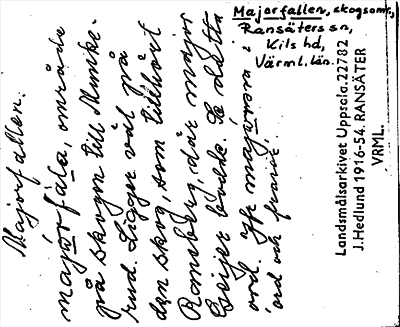 Majorfallen, skogsomr.,
Ransäters sn,
Kils hd,
Värml. län.
Majorfallen.
majorfala, område
på skogen till Munke-
rud. Ligger väl på
den skog, som tillhört
Ransberg, där major
Geijer bodde. Se detta
ord. Jfr majorora i
ord och frasic.
Landsmålsarkivet Uppsala. 22782
J. Hedlund 1916-54. RANSÄTER
VRML.